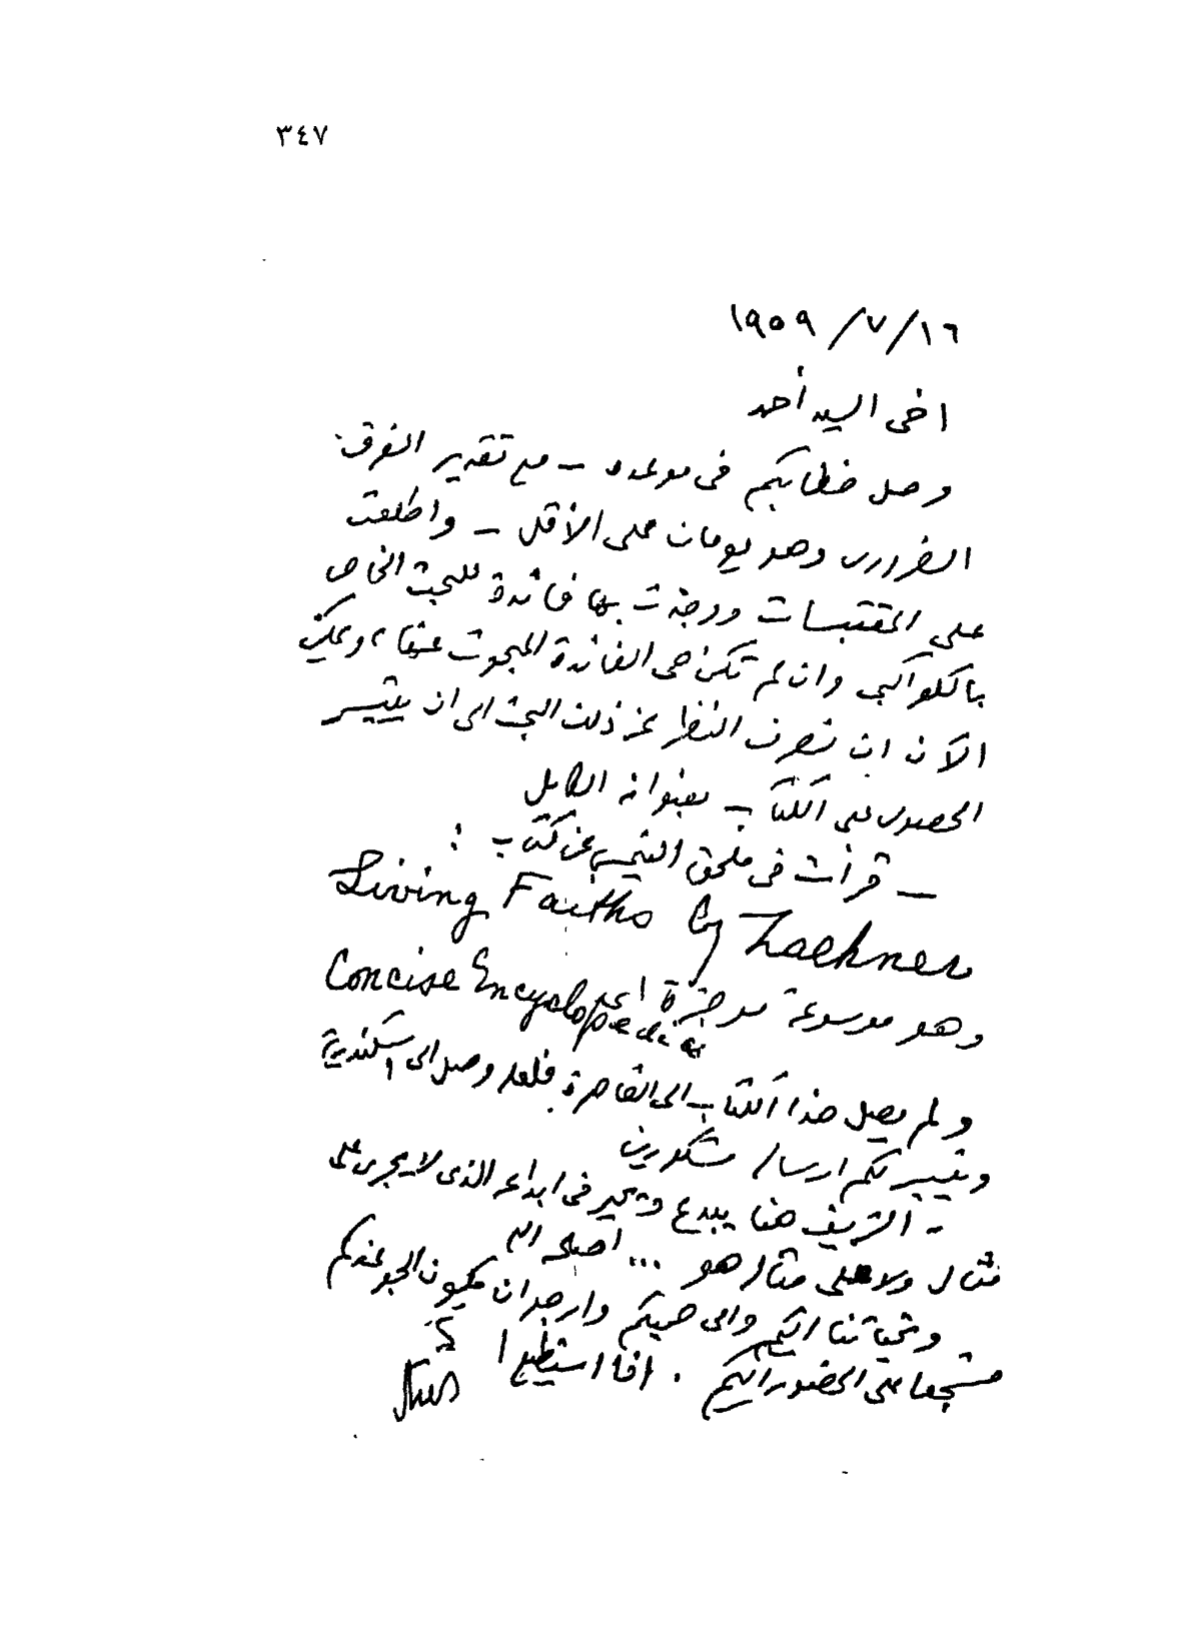 ٣٤٧
١٦/٧/١٩٥٩
اخى السيد أحمد
وصل خطابكم فى موعده – مع تقدير الفرق
الضرورى وهو يومان على الأقل – واطلعت
على المقتبسات ووجدت بها فائدة للبحث الخاص
بالكواكبى وان لم تكن هى الفائدة المبحوث عنها، ويمكن
الآن ان نصرف النظر عن ذلك البحث الى ان يتيسر
الحصول على الكتاب بعنوانه الكامل
– قرأت فى ملحق التيمس عن كتاب :
Living Faiths by Zaehner
وهو موسوعة موجزة Concise Encyclopedia
ولم يصل هذا الكتاب الى القاهرة فلعله وصل الى اسكندرية
ويتيسر لكم ارساله مشكورين
- الشريف هنا يبدع ويحير فى ابداعه الذى لا يجرى على
مثال ولا على مثاله هو ... أصلحه الله
وتحياتنا اليكم والى صحبكم وارجو ان يكون الجو عندكم
مشجعا على الحضور اليكم . اذا استطيع !